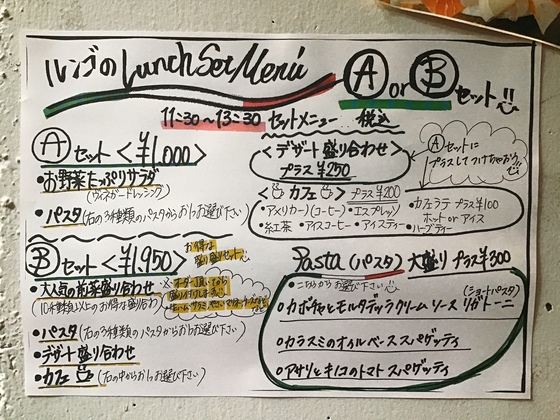 ルンゴのLunch Set Menu
Ⓐ or Ⓑ
セット
11:30~13:30
セットメニュー 税込
Ⓐセット <¥1,000>
・お野菜たっぷりサラダ
(ヴィネガードレッシング)
・パスタ(右の3種類のパスタからお1つお選び下さい)
Ⓑセット <¥1,950>
お得な
盛り盛りセット
・大人気の前菜盛り合わせ
(10種類以上のお得な盛り合わせ)
※オーダー頂いてから
・パスタ(右の3種類のパスタからお1つお選び下さい)
・デザート盛り合わせ
・カフェ(右の中からお1つお選び下さい)
<デザート盛り合わせ>
プラス¥250
Ⓐセットに
プラスしてつけちゃおう!!
<カフェ> プラス¥200
・アメリカーノ(コーヒー) ・エスプレッソ
・紅茶 ・アイスコーヒー ・アイスティー
・カフェラテ プラス¥100
ホット or アイス
・ハーブティー
Pasta (パスタ) 大盛り プラス¥300
・こちらからお選び下さい
(ショートパスタ)
・カボチャとモルタデッラクリームソース リガトーニ
・カラスミのオイルベース スパゲッティ
・アサリとキノコのトマト スパゲッティ